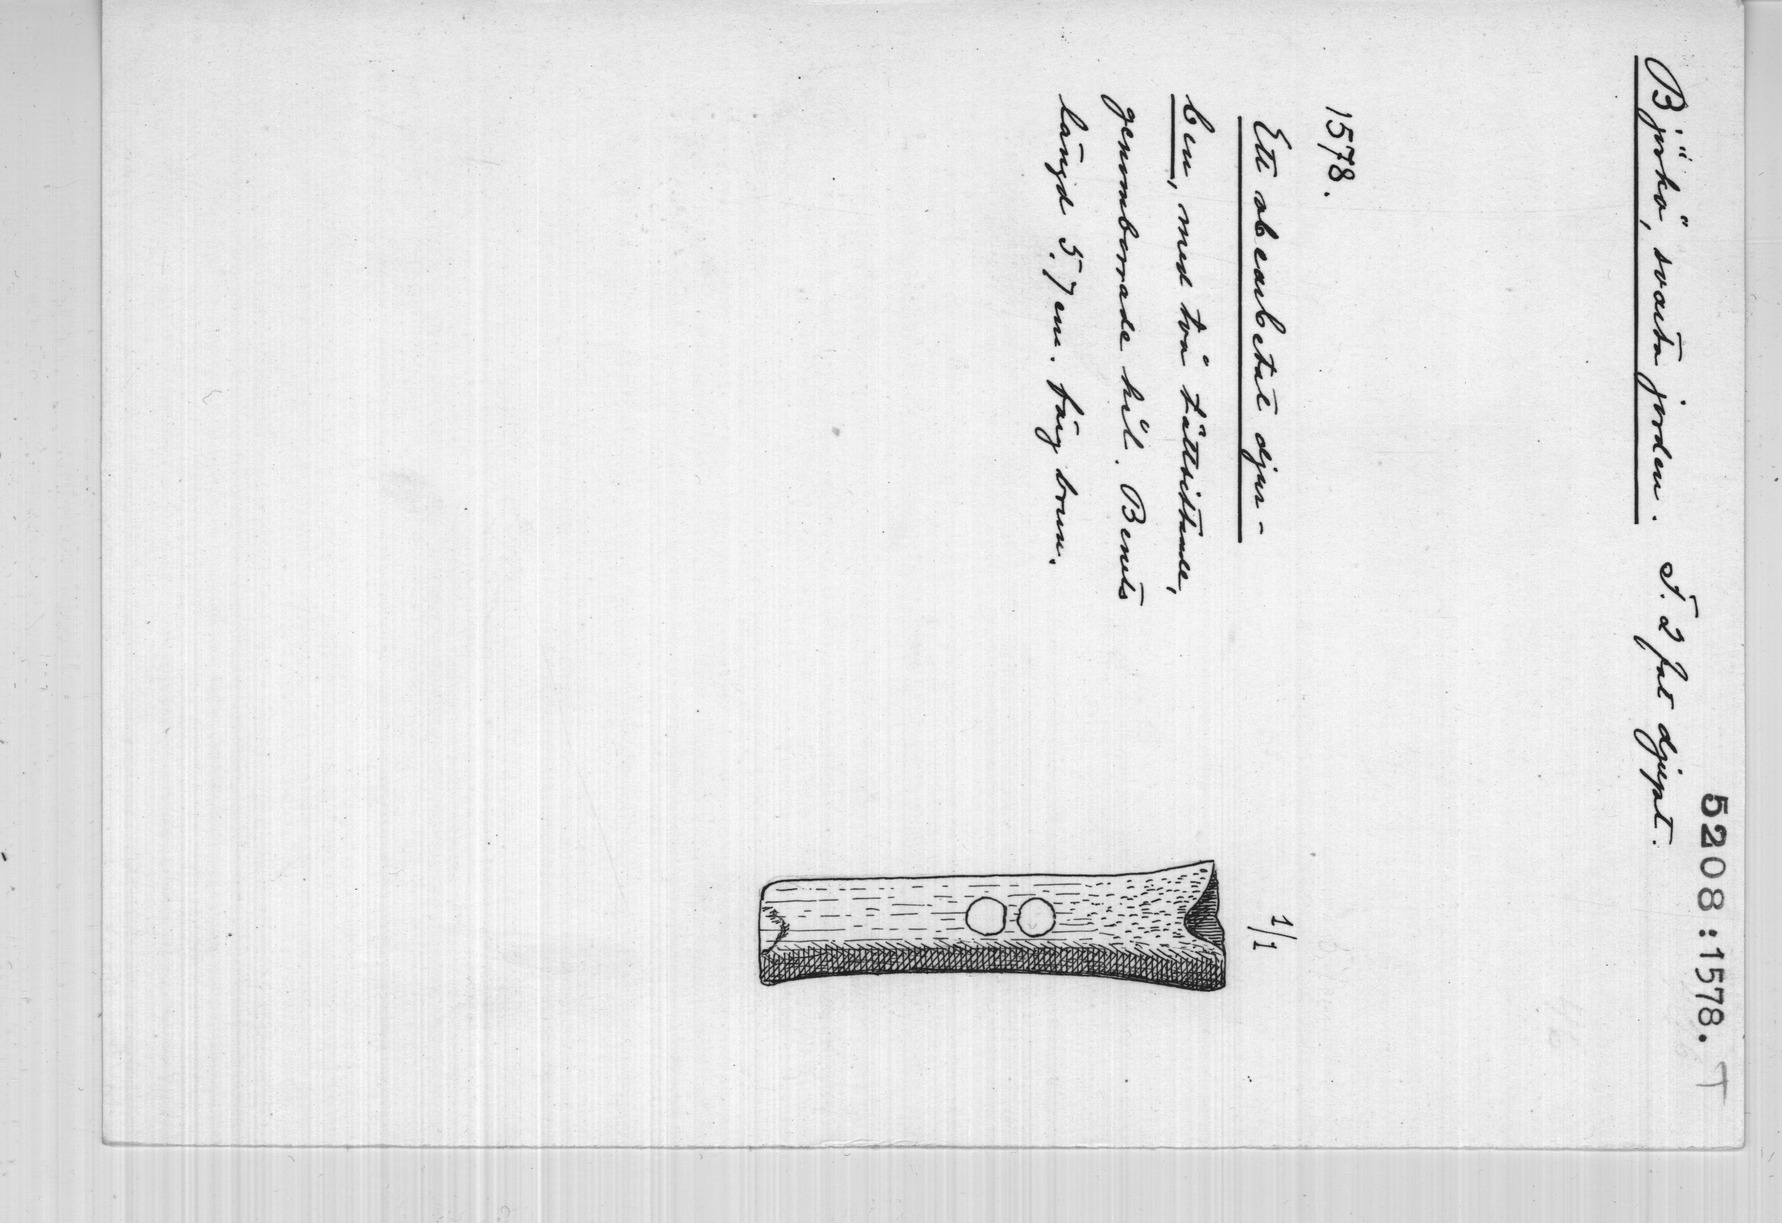 5208:1578. T
Björkö, svarta jorden. F. 2 fot djupt.
1578.
Ett obearbetat djur-
ben, med två tättsittande,
genomborrade hål. Benets
längd 5.7 cm. färg brun.
1/1